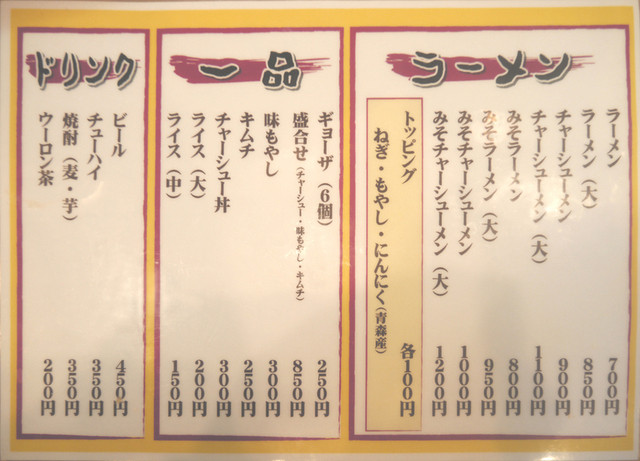 ラーメン
ラーメン 700円
ラーメン（大） 850円
チャーシューメン 900円
チャーシューメン（大） 1100円
みそラーメン 800円
みそラーメン（大） 950円
みそチャーシューメン 1000円
みそチャーシューメン（大） 1200円
トッピング
ねぎ・もやし・にんにく（青森産） 各100円
一品
ギョーザ（6個） 250円
盛合せ（チャーシュー・味もやし・キムチ） 850円
味もやし 300円
キムチ 250円
チャーシュー丼 300円
ライス（大） 200円
ライス（中） 150円
ドリンク
ビール 450円
チューハイ 350円
焼酎（麦・芋） 350円
ウーロン茶 200円